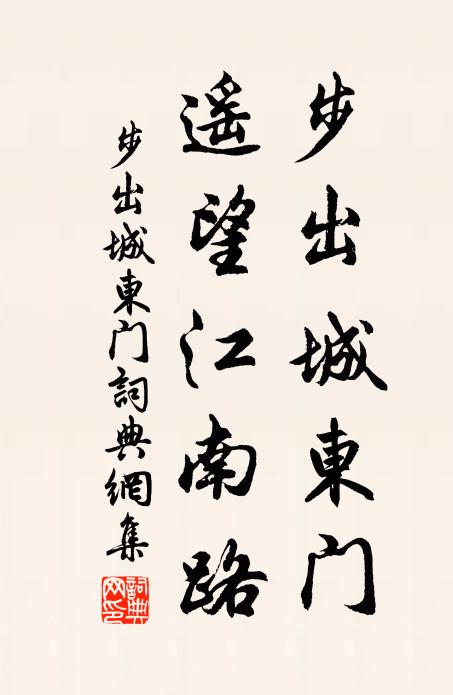 步出城東门
遥望江南路
步出城東门詞典網集
詞典网印